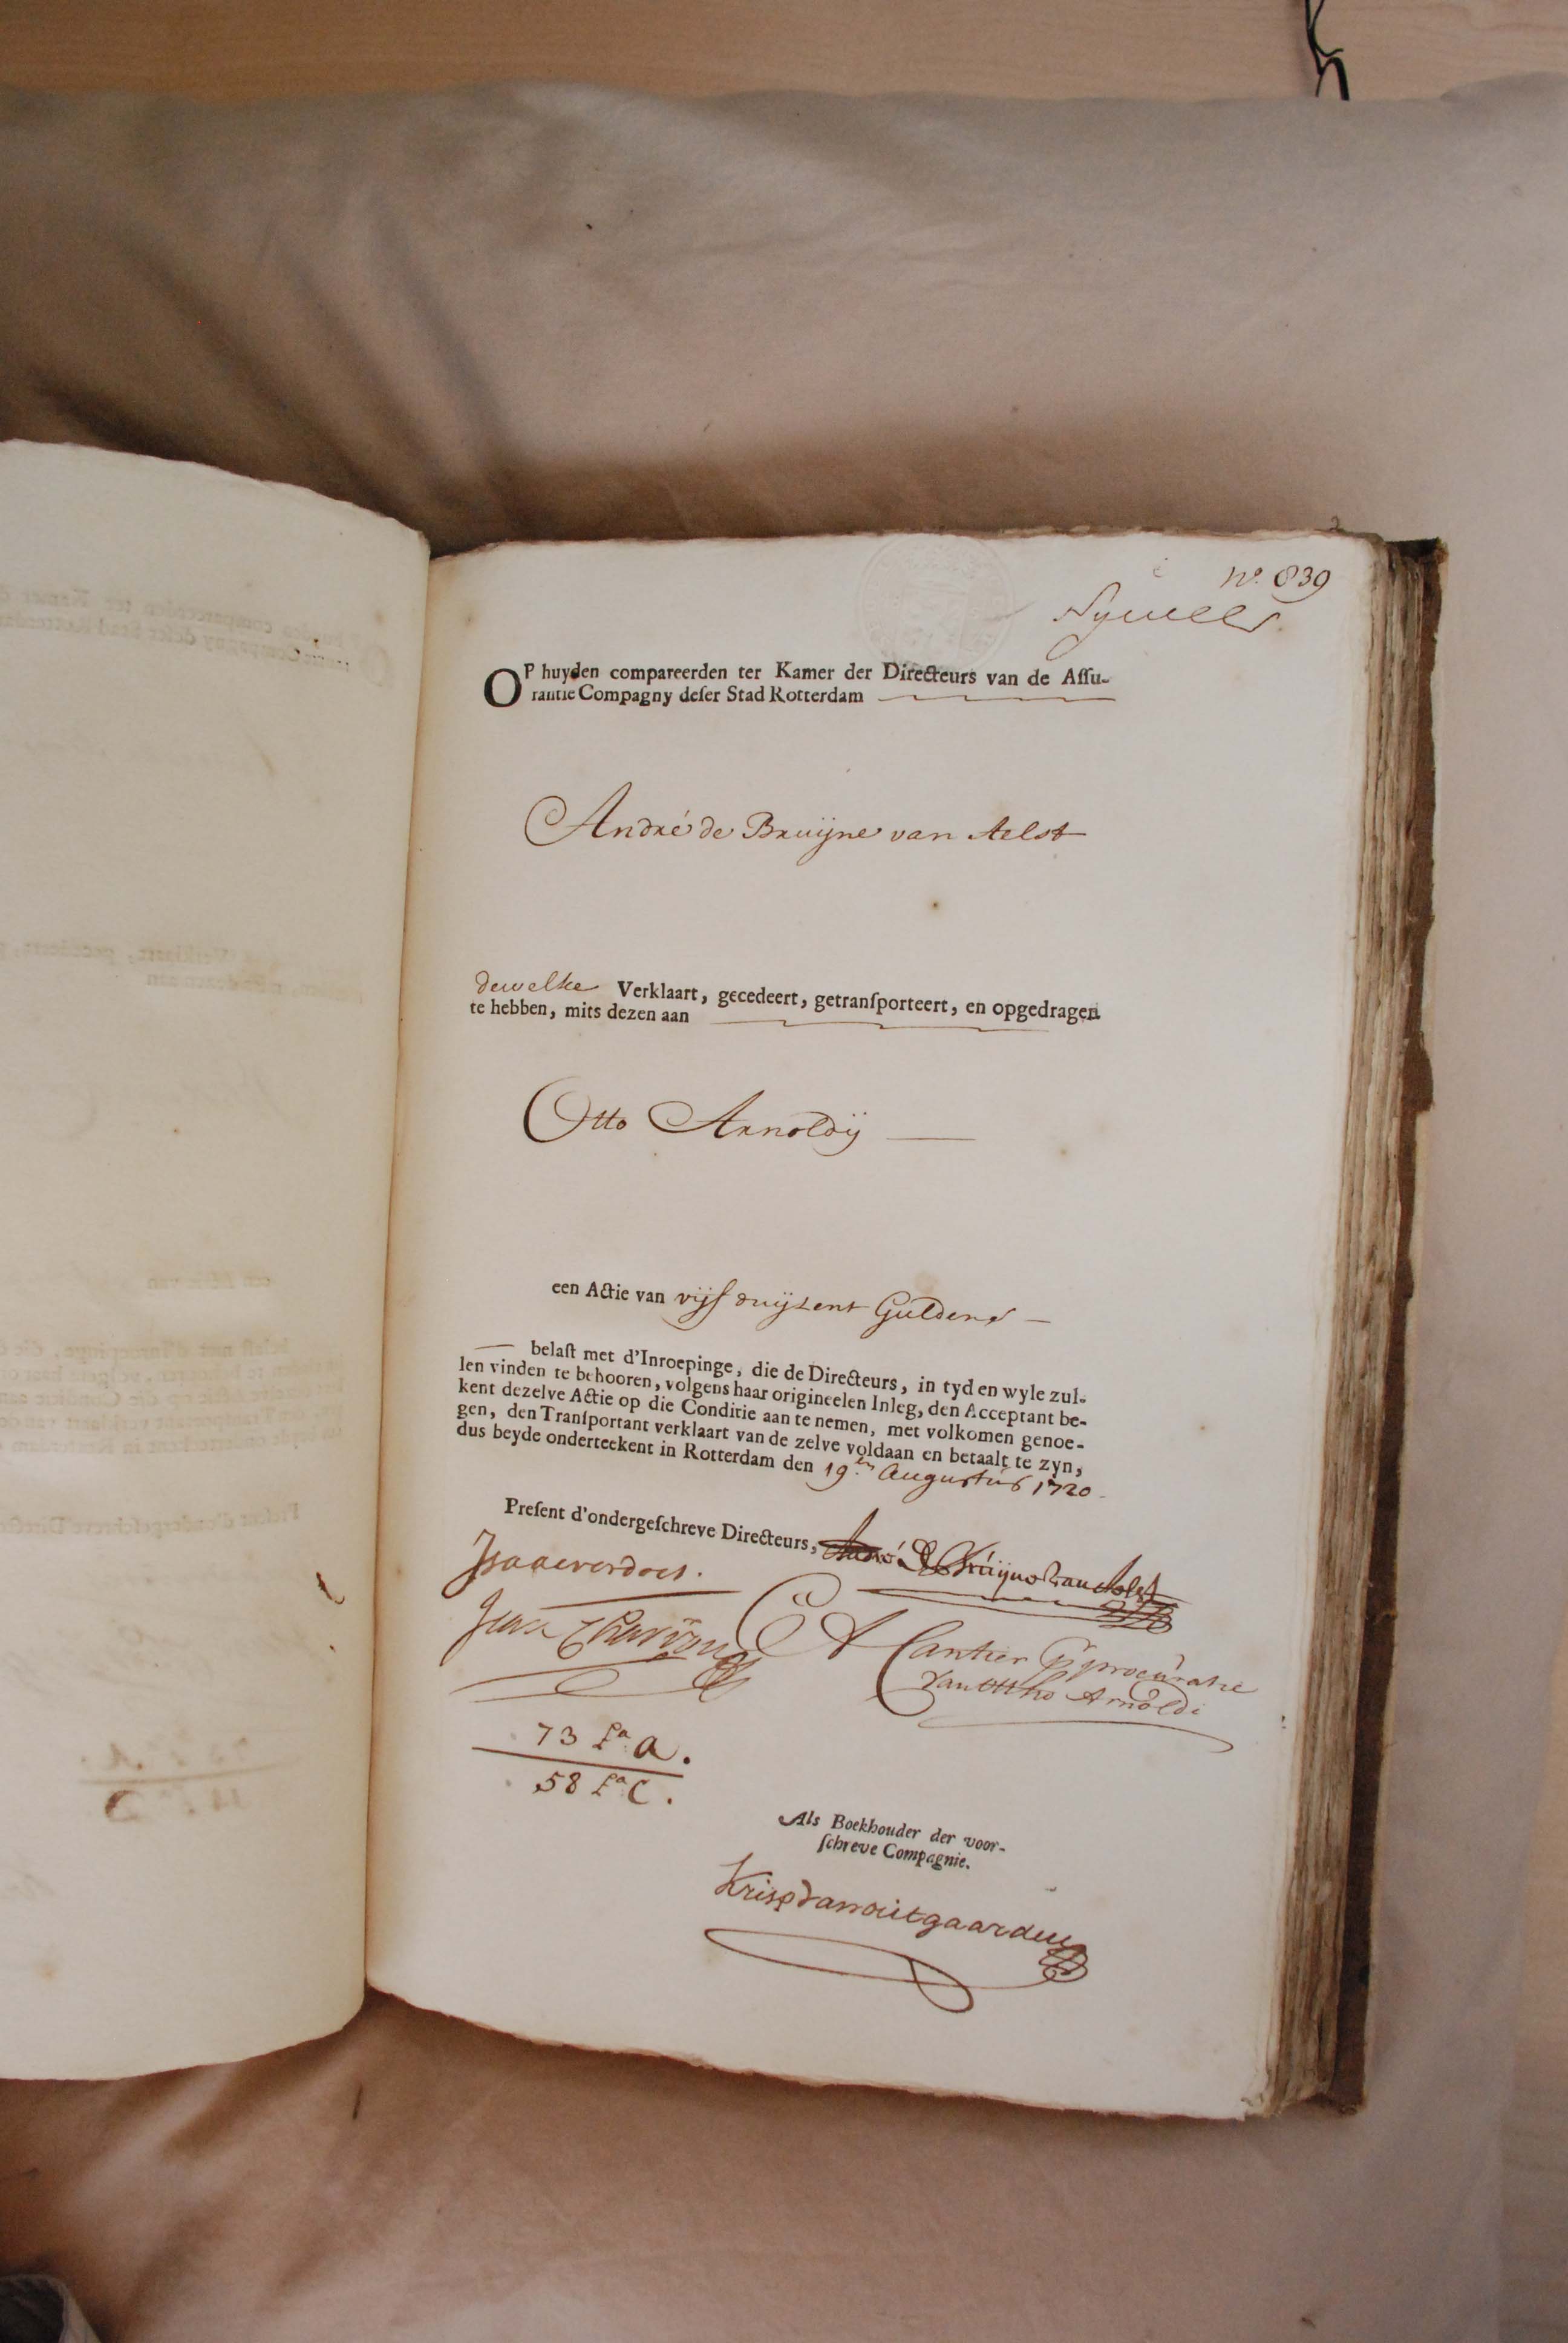 nº. 839
OP huyden compareerden ter Kamer der Directeurs van de Assu-
rantie Compagny deser Stad Rotterdam
André de Bruijne van Aelst
dewelke Verklaart, gecedeert, getransporteert, en opgedragen
te hebben, mits dezen aan
Otto Arnoldij
een Actie van vijf duijzent Guldens
belast met d'Inroepinge, die de Directeurs, in tyd en wyle zul-
len vinden te behooren, volgens haar origineelen Inleg, den Acceptant be-
kent dezelve Actie op die Conditie aan te nemen, met volkomen genoe-
gen, den Transportant verklaart van de zelve voldaan en betaalt te zyn,
dus beyde onderteekent in Rotterdam den 19.en Augustus 1720
Present d'ondergeschreve Directeurs, André De Bruijne van Aelst
Isaac verdoes.
A Cantier p procuratie
van Ottho Arnoldi
73 fa. A.
58 fa. C.
Als Boekhouder der voor-
schreve Compagnie.
Krisp van outgaarden